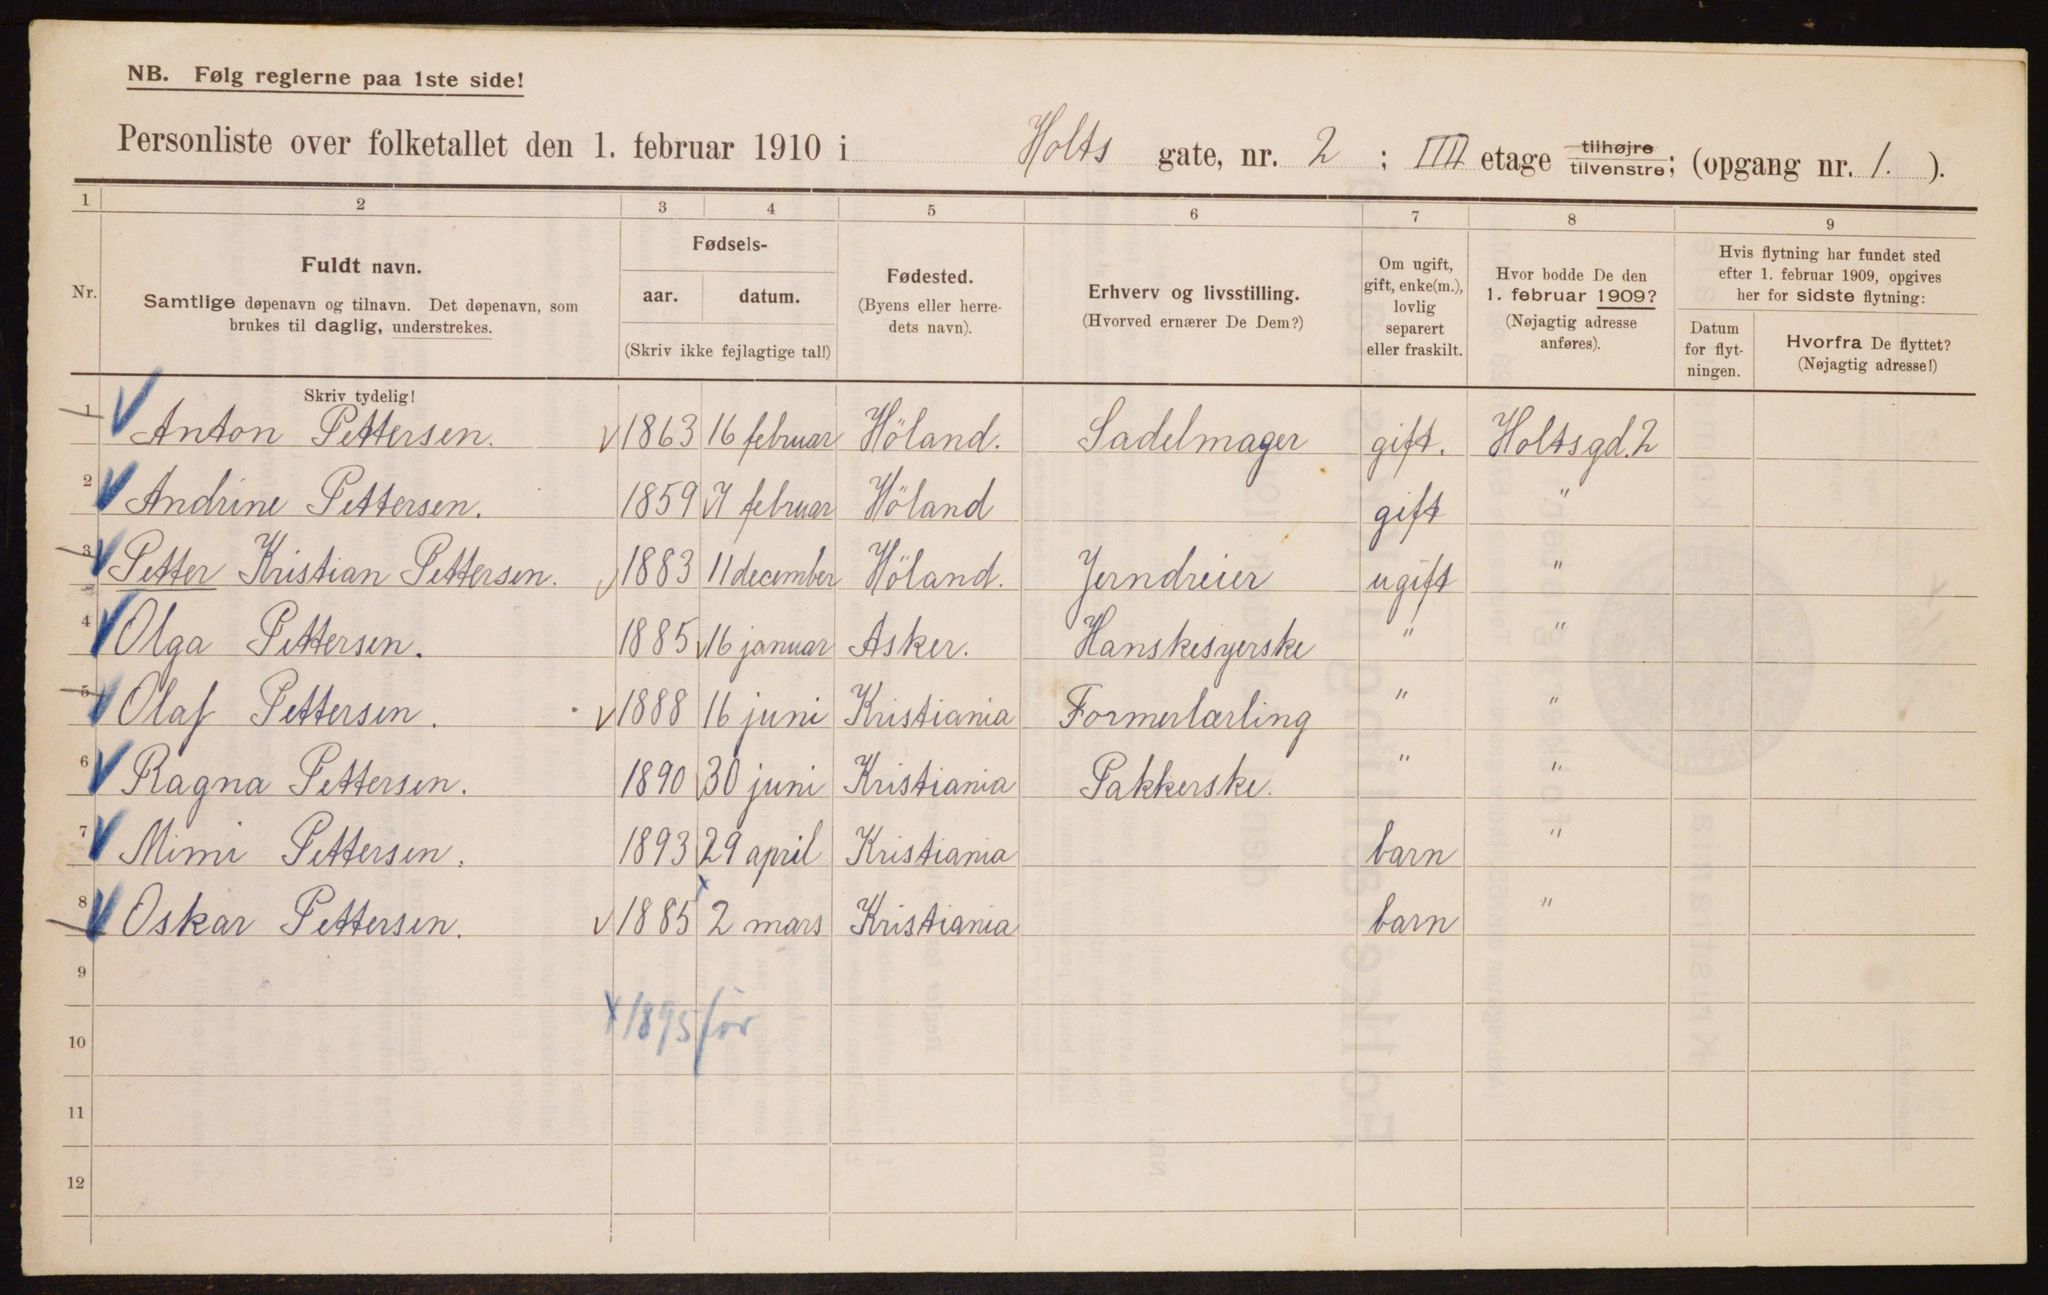 NB. Følg reglerne paa 1ste side!
Personliste over folketallet den 1. februar 1910 i Holts gate, nr. 2 ; III etage tilhøjre tilvenstre; (opgang nr. 1. ).
1 2 3 4 5 6 7 8 9
Nr.
Fuldt navn.
Samtlige døpenavn og tilnavn. Det døpenavn, som
brukes til daglig, understrekes.
Fødsels-
aar. datum.
(Skriv ikke fejlagtige tal!)
Fødested.
(Byens eller herre-
dets navn).
Erhverv og livsstilling.
(Hvorved ernærer De Dem?)
Om ugift,
gift, enke(m.),
lovlig
separert
eller fraskilt.
Hvor bodde De den
1. februar 1909?
(Nøjagtig adresse
anføres).
Hvis flytning har fundet sted
efter 1. februar 1909, opgives
her for sidste flytning:
Datum
for flyt-
ningen.
Hvorfra De flyttet?
(Nøjagtig adresse!)
Skriv tydelig!
1 Anton Pettersen. 1863 16 februar Höland. Sadelmager gift. Holtsgd. 2
2 Andrine Pettersen. 1859 7 februar Höland gift "
3 Petter Kristian Pettersen. 1883 11 december Höland. Jerndreier ugift "
4 Olga Pettersen. 1885 16 januar Asker. Hanskesyerske " "
5 Olaf Pettersen. 1888 16 juni Kristiania Formerlærling " "
6 Ragna Pettersen. 1890 30 juni Kristiania Pakkerske. " "
7 Mimi Pettersen. 1893 29 april Kristiania barn "
8 Oskar Pettersen. 1885 x 2 mars Kristiania barn "
9
x 1895 før
10
11
12